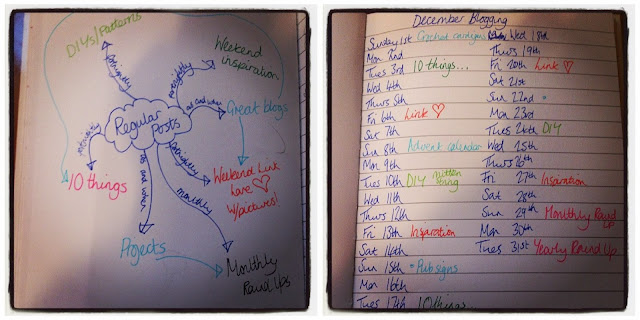 DIYs/Patterns
fortnightly
Weekend
inspiration
fortnightly
as and when
Great blogs
Regular
Posts
fortnightly
10 things
fortnightly
Weekend Link
Love ♡
w/pictures!
as and when
monthly
Projects
Monthly
Round Ups
December Blogging
Sunday 1st Crochet cardigan
Mon 2nd
Tues 3rd 10 things...
Wed 4th
Thurs 5th
Fri 6th Link ♡
Sat 7th
Sun 8th Advent calendar
Mon 9th
Tues 10th DIY mitten string
Wed 11th
Thurs 12th
Fri 13th Inspiration
Sat 14th
Sun 15th * Pub signs
Mon 16th
Tues 17th 10 things...
Wed 18th
Thurs 19th
Fri 20th Link ♡
Sat 21st
Sun 22nd *
Mon 23rd
Tues 24th DIY
Wed 25th
Thurs 26th
Fri 27th Inspiration
Sat 28th
Sun 29th Monthly Round Up
Mon 30th
Tues 31st Yearly Round Up